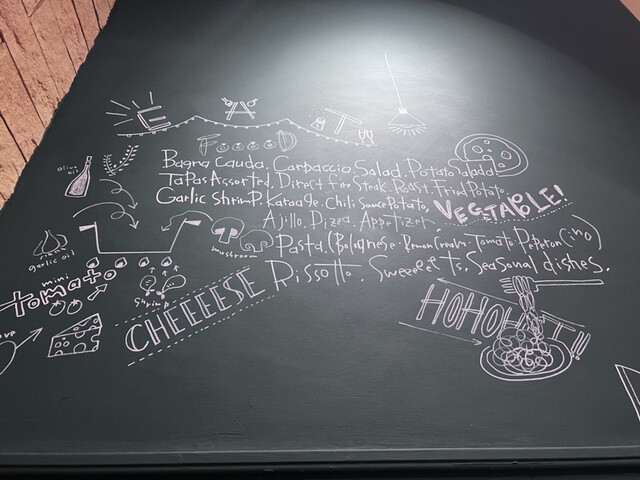 EAT
Food
Bagna Cauda. Carpaccio. Salad. Potato Salada.
Tapas Assorted. Direct Fire Steak. Roast. Fried Potato.
Garlic Shrimp. Karaage. Chili Sauce Potato. VEGETABLE!
Ajillo. Pizza. Appetizer
Pasta. (Bolognese. Lemon Cream. Tomato. Peperon(:no)
CHEEEESE Rissotto. Sweeeets. Seasonal dishes.
olive oil
garlic oil
mushroom
mini tomato
Shrimp
HOHOHO